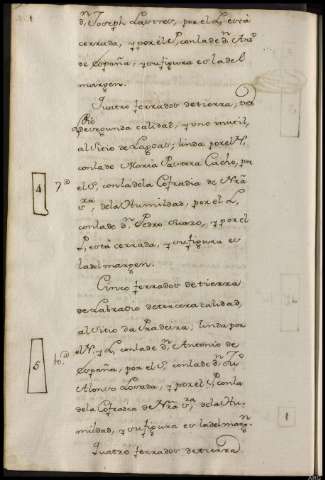 dn. Joseph Laveros, por el L. está
cerrada, y por el P. con la de dn. Anto
de España, y su figura es la del
margen.
Quatro ferrados de tierra, los
de segunda calidad, y uno inutil,
al Sitio de Lagoas; linda por el N.
con la de Maria Pavera Cacho, por
4 7º el S. con la de la Cofradia de Nra
Sra. de la Humildad, por el L.
con la de dn. Pedro, y por el
P. está cerrada, y su figura es
la del margen.
Cinco ferrados de tierra
de Labradio de tercera calidad,
al Sitio da Pradeira; linda por
5 10º el N. y L. con la de dn. Antonio de
España, por el S. con la de dn.
Alonso Losada, y por el P. con la
de la Cofradia de Nra Sra. de la Hu-
mildad, y su figura es la del margn.
Quatro ferrados de tierra